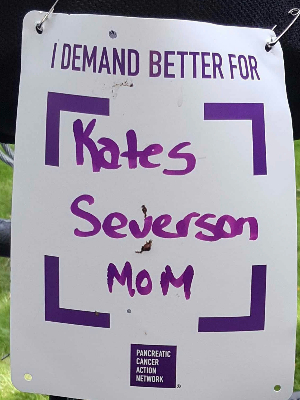 I DEMAND BETTER FOR
Kates
Severson
MOM
PANCREATIC
CANCER
ACTION
NETWORK